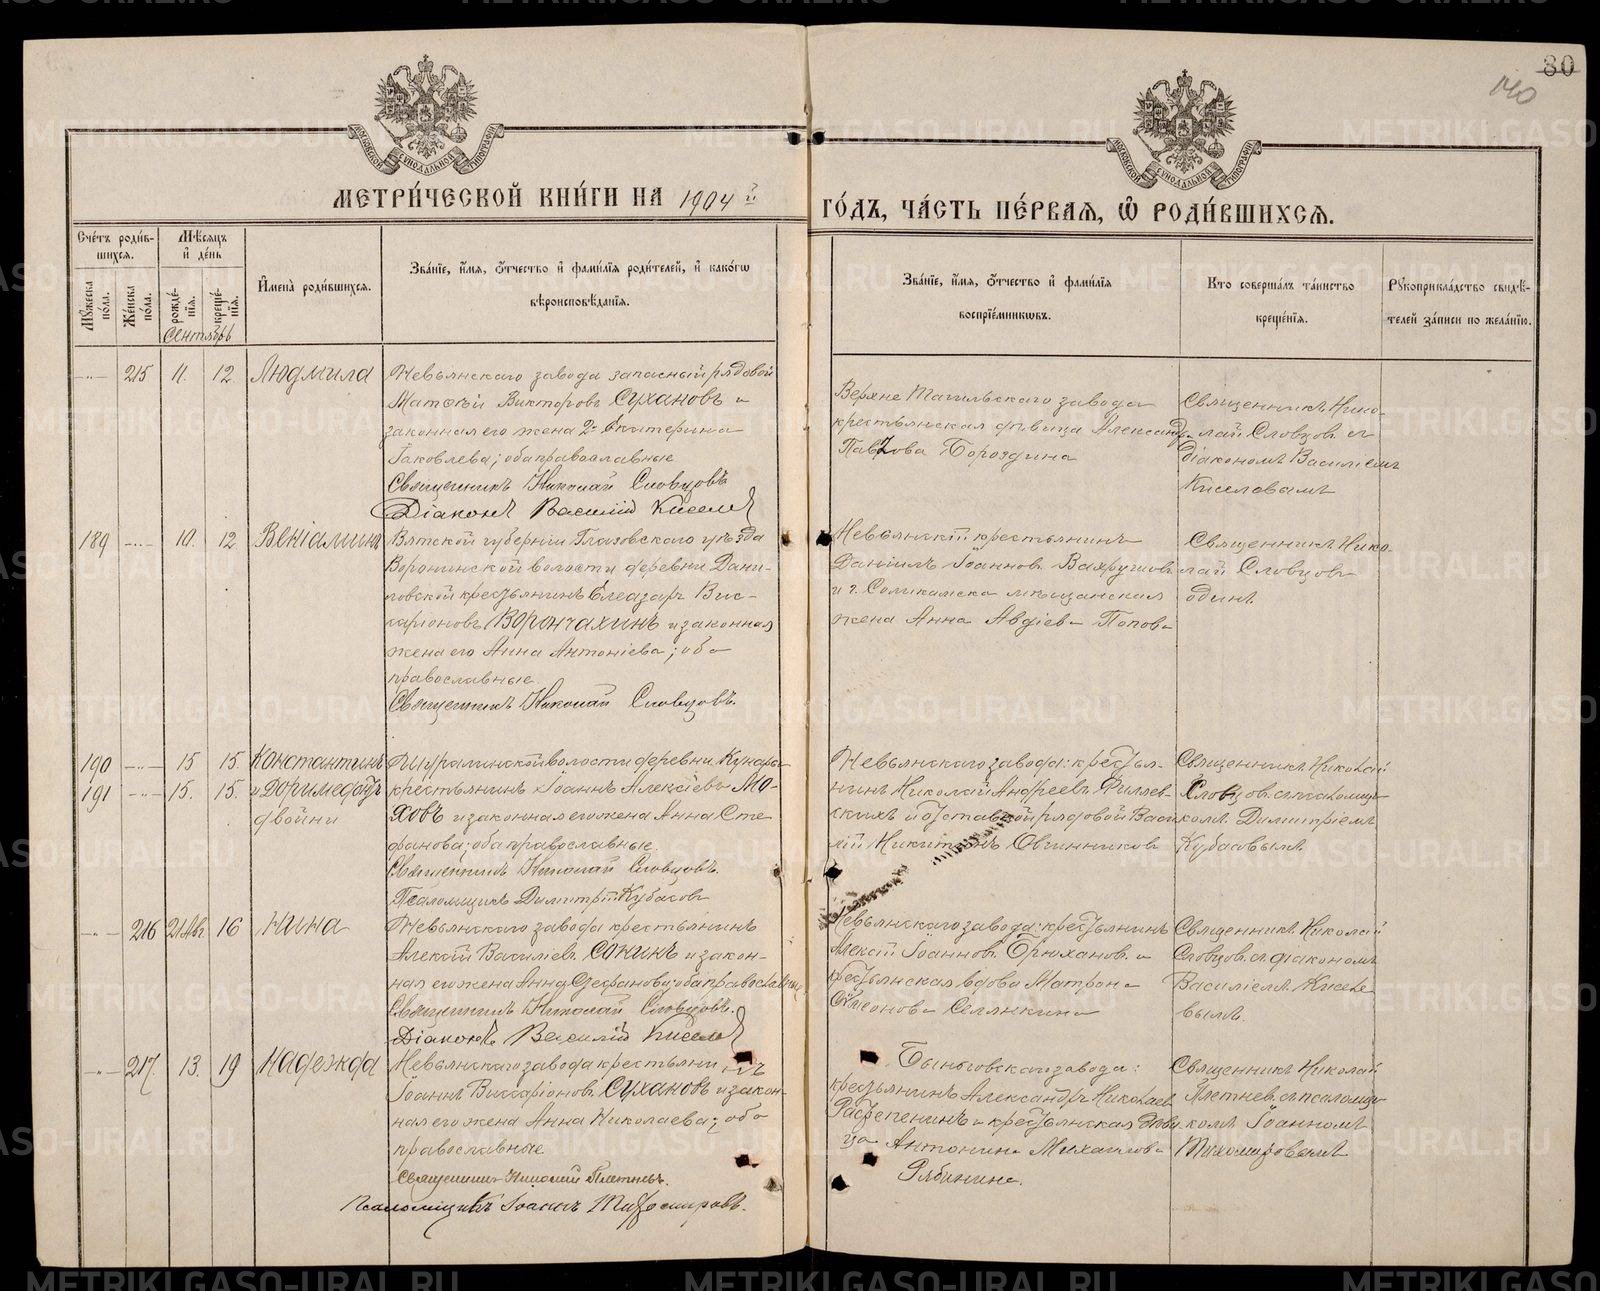 80
140
МОСКОВСКОЙ СѴНОДАЛЬНОЙ ТИПОГРАФІИ
МОСКОВСКОЙ СѴНОДАЛЬНОЙ ТИПОГРАФІИ
МЕТРИ́ЧЕСКОЙ КНИ́ГИ НА 1904й ГО́ДЪ, ЧА́СТЬ ПЕ́РВАЯ, Ѡ РОДИ́ВШИХСЯ.
Сче́тъ роди́в-
шихся.
Мѣ́сяцъ
и҆ де́нь
Мꙋ́жеска по́ла.
Же́нска по́ла.
рожде́-
нїя.
креще́-
нїя.
Сентябрь
И҆мена̀ роди́вшихся.
Зва́нїе, и҆́мя, ѻ҆́тчество и҆ фами́лїя роди́телей, и҆ како́гѡ
вѣроисповѣ́данїя.
Зва́нїе, и҆́мя, ѻ҆́тчество и҆ фами́лїя
воспрїе́мникѡвъ.
Кто соверша́лъ та́инство
креще́нїя.
Рꙋкоприкла́дство свидѣ́-
телей за́писи по жела́нїю.
-"- 215 11. 12. Людмила
Невьянскаго завода запасный рядовой
Матѳей Викторовъ Сухановъ и
законная его жена 2я Екатерина
Іаковлева; оба православные
Священникъ Николай Словцовъ
Діаконъ Василій Киселев
Верхне Тагильскаго завода
крестьянская дѣвица Александра
Павлова Бороздина
Священникъ Нико-
лай Словцов съ
діакономъ Василіемъ
Киселевымъ
189 -"- 10. 12. Веніаминъ
Вятской губерніи Глазовскаго уѣзда
Воронинской волости деревни Дани-
ловской крестьянинъ Елеазаръ Вис-
саріоновъ Ворончахинъ и законная
жена его Анна Антоніева; оба
православные.
Священникъ Николай Словцовъ.
Невьянскій крестьянинъ
Даніилъ Іоанновъ Вахрушев
и г. Соликамска мѣщанская
жена Анна Авдіева Попова
Священникъ Нико-
лай Словцов
одинъ
190 -"- 15 15 Константинъ
191 -"- 15. 15. и Доримедонтъ
двойни
Шуралинской волости деревни Кунары
крестьянинъ Іоаннъ Алексіевъ Мо-
ховъ и законная его жена Анна Сте
фанова; оба православные.
Священникъ Николай Словцовъ.
Псаломщикъ Димитрій Кубасов
Невьянскаго завода: крестья-
нинъ Николай Андреев Филлев-
скихъ и отставной рядовой Васи
лій Никитинъ Овчинников
Священникъ Николай
Словцов съ псаломщи-
комъ Димитріемъ
Кубасовымъ
-"- 216 21 Ав. 16 Нина
Невьянскаго завода крестьянинъ
Алексій Василіев Сонинъ и закон-
ная его жена Анна Стефанова; оба православные
Священникъ Николай Словцовъ.
Діаконъ Василій Киселев
Невьянскаго завода: крестьянинъ
Алексій Іоаннов Брюханов и
крестьянская вдова Матрона
Симеонова Селянкина
Священникъ Николай
Словцов съ діакономъ
Василіемъ Киселе
вымъ.
-"- 217. 13. 19 Надежда
Невьянскаго завода крестьянинъ
Іоаннъ Виссаріонов Сухановъ и закон-
ная его жена Анна Николаева; оба
православные
Священникъ Николай Плетневъ.
Псаломщикъ Іоаннъ Тихомировъ.
Быньговскаго завода:
крестьянинъ Александръ Николаев
Растепенинъ и крестьянская дѣви
ца Антонина Михаилова
Рябинина.
Священникъ Николай
Плетнев съ псаломщи-
комъ Іоанномъ
Тихомировымъ
METRIKI.GASO-URAL.RU